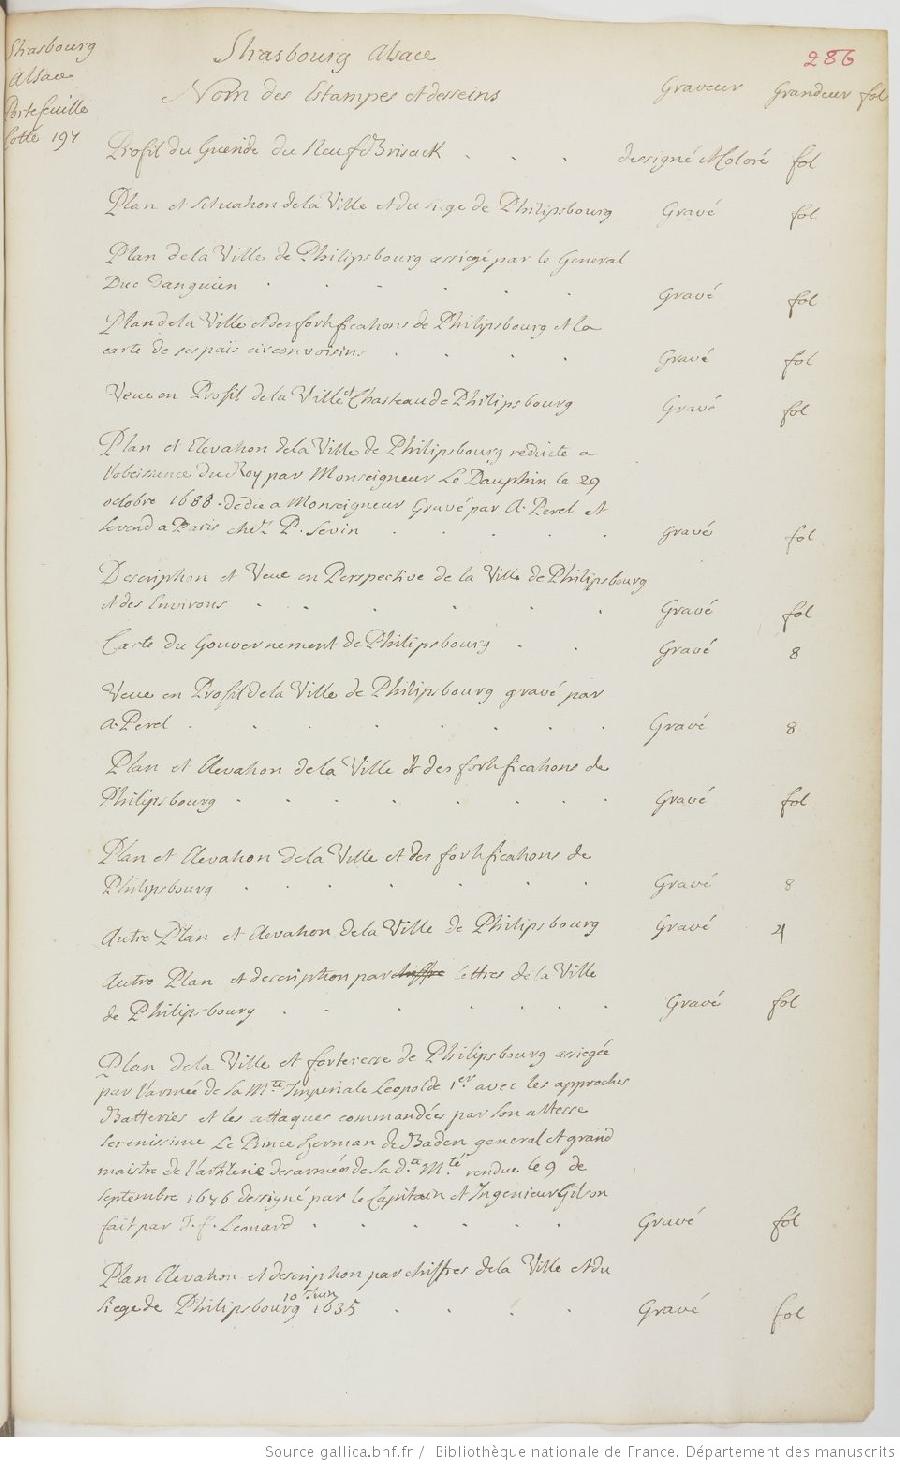 Strasbourg
Alsace
Portefeuille
Cotté 197
Strasbourg Alsace
286
Nom des Estampes et desseins Graveur Grandeur fol
Profil du Gueride du Neuf Brisack . . . dessigné et Coloré fol
Plan et situation de la Ville et du siege de Philipsbourg Gravé fol
Plan de la Ville de Philipsbourg assiégé par le General
Duc Danguien . . . . . . Gravé fol
Plan de la Ville et des fortifications de Philipsbourg et la
carte de ses païs circonvoisins . . . . Gravé fol
Veue en Profil de la Ville et Chasteau de Philipsbourg Gravé fol
Plan et Elevation de la Ville de Philipsbourg reduicte a
l'obeissance du Roy par Monseigneur Le Dauphin le 29
octobre 1688. dedié a Monseigneur Gravé par A. Perel et
se vend a Paris chez P. Sevin . . . . . Gravé fol
Description et Veue en Perspective de la Ville de Philipsbourg
et des Environs . . . . . . Gravé fol
Carte du Gouvernement de Philipsbourg . . Gravé 8
Veue en Profil de la Ville de Philipsbourg gravé par
A. Perel . . . . . . . Gravé 8
Plan et Elevation de la Ville & des fortifications de
Philipsbourg . . . . . . . Gravé fol
Plan et Elevation de la Ville et des fortifications de
Philipsbourg . . . . . . Gravé 8
Autre Plan et Elevation de la Ville de Philipsbourg Gravé 4
Autre Plan et description par chiffre lettres de la Ville
de Philipsbourg . . . . . . . Gravé fol
Plan de la Ville et forteresse de Philipsbourg assiegée
par l'armée de sa Mté Imperiale Leopolde 1er avec les approches
Batteries et les attaques commandées par son altesse
serenissime Le Prince Herman de Baden general et grand
maistre de l'artillerie des armées de sa de Mté rendue le 9 de
septembre 1676 dessigné par le Capitain et Ingenieur Gilson
fait par J. f. Leonard . . . . . Gravé fol
Plan Elevation et description par chiffres de la Ville et du
siege de Philipsbourg 10 Juin 1635 . . . . Gravé fol
Source gallica.bnf.fr / Bibliothèque nationale de France. Département des manuscrits